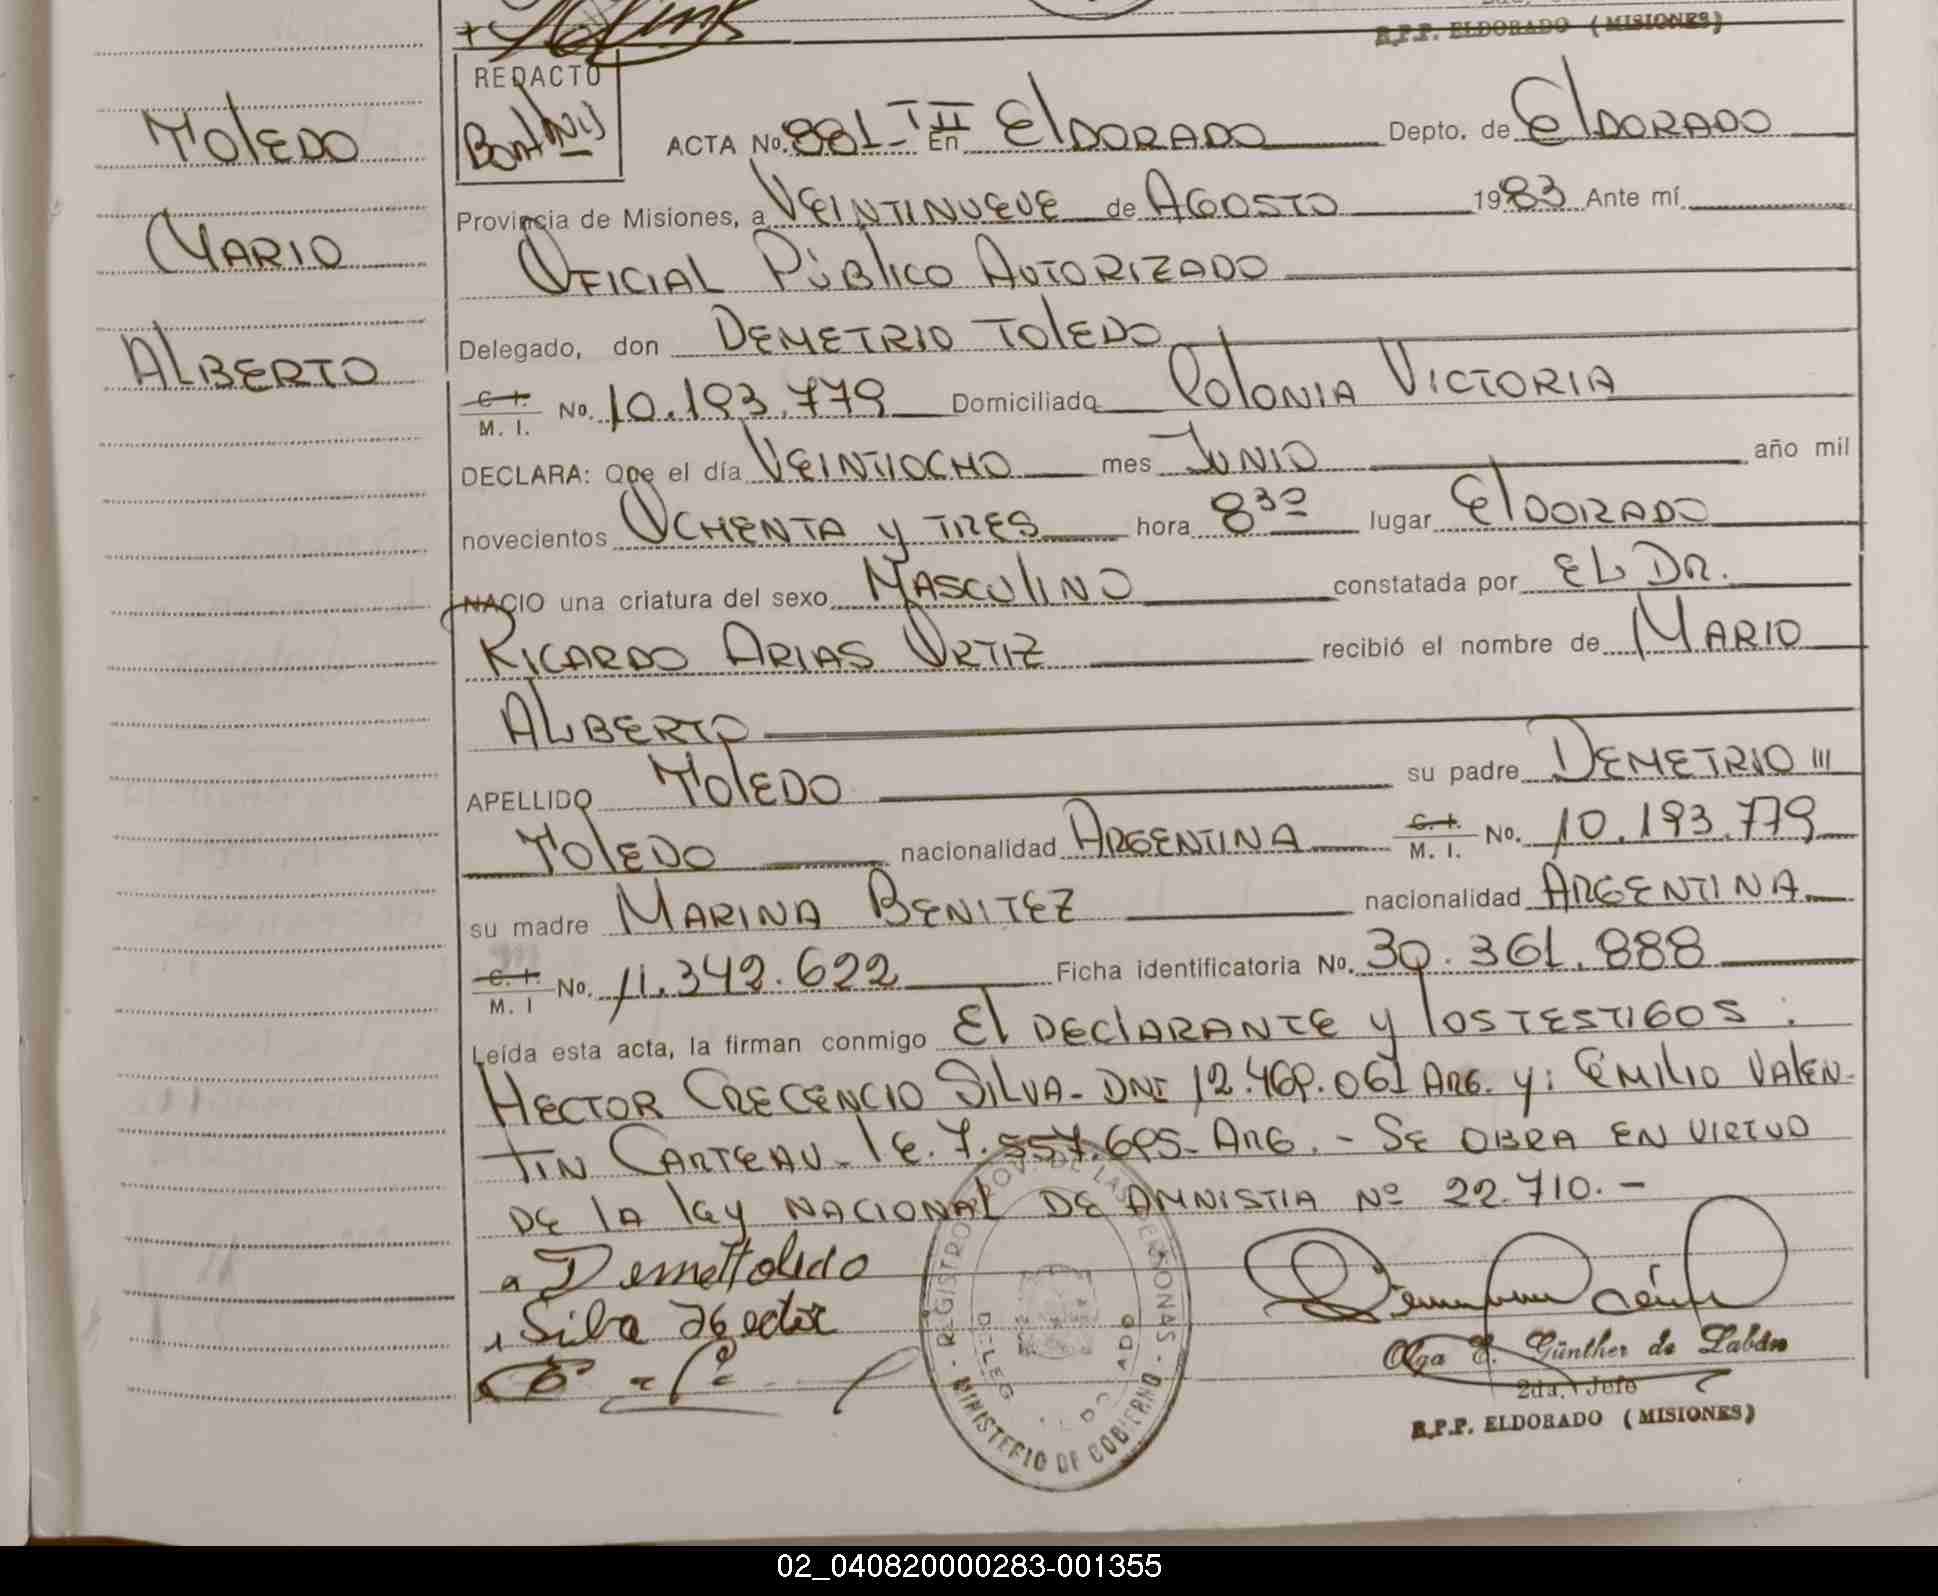 R.P.P. ELDORADO (MISIONES)
REDACTO
TOLEDO
MARIO
ALBERTO
ACTA No. 881-III En ELDORADO Depto. de ELDORADO
Provincia de Misiones, a VEINTINUEVE de AGOSTO 1983 Ante mí
OFICIAL PÚBLICO AUTORIZADO
Delegado, don DEMETRIO TOLEDO
C. I. M. I. No. 10.193.779 Domiciliado COLONIA VICTORIA
DECLARA: Que el día VEINTIOCHO mes JUNIO año mil
novecientos OCHENTA y TRES hora 8³⁰ lugar ELDORADO
NACIO una criatura del sexo MASCULINO constatada por EL DR.
RICARDO ARIAS ORTIZ recibió el nombre de MARIO
ALBERTO
APELLIDO TOLEDO su padre DEMETRIO
TOLEDO nacionalidad ARGENTINA C. I. M. I. No. 10.193.779
su madre MARINA BENITEZ nacionalidad ARGENTINA
C. I. M. I No. 11.342.622 Ficha identificatoria No. 30.361.888
Leída esta acta, la firman conmigo El DECLARANTE y los TESTIGOS:
HECTOR CRECENCIO SILVA- DNI 12.469.061 ARG. y: EMILIO VALEN-
TIN CARTEAU- lE. 7.557.695- ARG. - SE OBRA EN VIRTUD
DE lA ley NACIONAL DE AMNISTIA Nº 22.710.-
Silva Hector
REGISTRO PROV. DE LAS PERSONAS
MINISTERIO DE GOBIERNO
Olga E. Günther de Labán
2da. Jefe
R.P.P. ELDORADO (MISIONES)
02_040820000283-001355